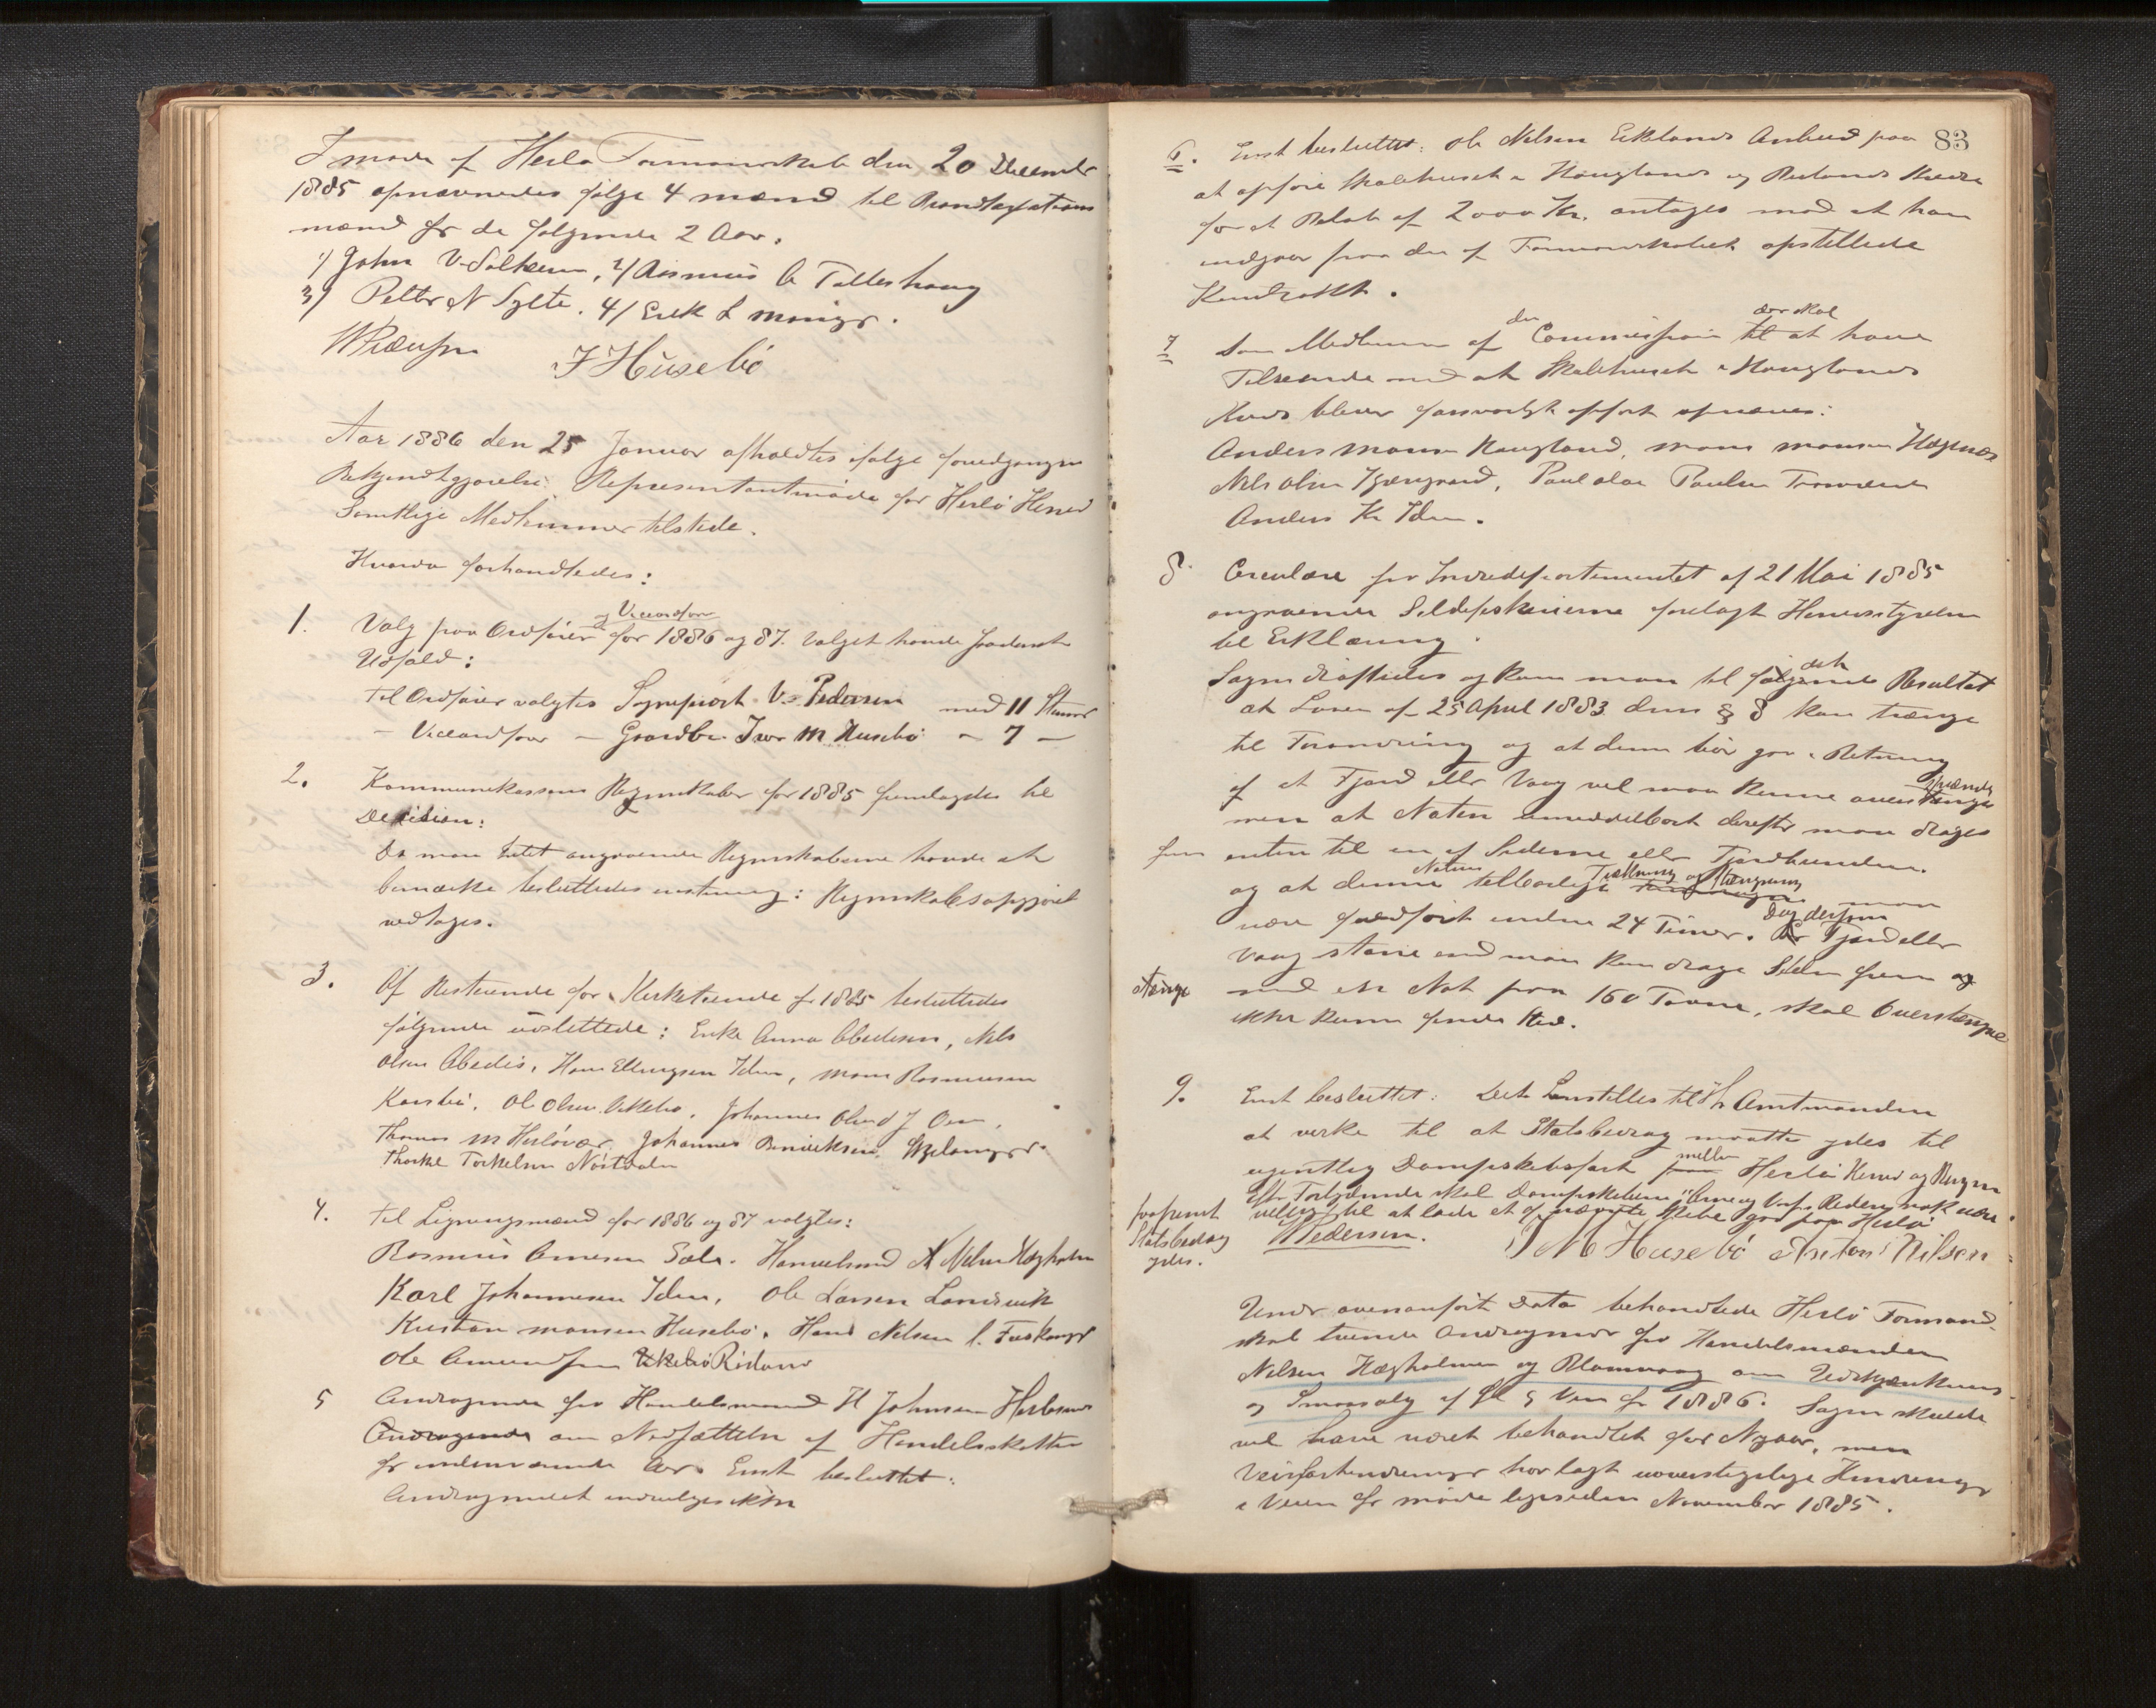 I møde af Herlø Formandskab den 20 December
1885 opnævnedes følge 4 mænd til Brandtaxations
mænd for de følgende 2 Aar.
1/ John V. Solheim, 2/ Rasmus A Telleshaug
3/ Petter N Sylte. 4/ Erik L Manger.
VPedersen JHusebö
Aar 1886 den 25 Januar afholdtes ifølge foregangen
Bekjendtgjørelse Representantmøde for Herlö Herred
Samtlige Medlemmer tilstede.
Hvorda forhandledes:
1. Valg paa Ordfører og Viceordfører for 1886 og 87. Valget havde saadant
Udfald:
Til Ordfører valgtes Sogneprest V. Pedersen med 11 Stemmer
- Viceordfører - Gaardbr. Iver M Husebö - 7 -
2. Kommunekassens Regnskaber for 1885 fremlagdes til
Decision:
Da man Intet angaaende Regnskaberne havde at
bemærke besluttedes enstemmig: Regnskabsopgjøret
vedtages.
3. Af Resterende for Kirketiende for 1885 besluttedes
følgende udslettede: Enke Anna Abedisen, Nils
Olsen Abedis, Hans Ellingsen Iden, Mons Rasmussen
Ole Olsen Johannes Olsen
Thomas M Herlövær, Johannes
Thorkel Torkelsen
4. Til Ligningsmænd for 1886 og 87 valgtes:
Rasmus Arnesen Sæle. Handelsmd N Nilsen Hægholm
Karl Johannesen Iden, Ole Larsen Landsvik
Kristian Monsen Husebö. Hans Nilsen
Ole Amundsen
5 Andragende fra Handelsmand H Johnsen
Andragende om Nedsættelse af Handelsskatten
for indeværende Aar. Enst besluttet:
Andragendet indvilges ikke
83
6. Enst besluttet: Ole Nilsen Eiklands Anbud paa
at opføre Skolehuset i Hauglands og Kreds
for et Beløb af 2000 Kr. antages mod at han
indgaar paa den af Formandskabet opstillede
Kontrakt.
7 Som Medlemmer af den Commission der skal til at have
Tilseende med at Skolehuset i Hauglands
Kreds bliver forsvarligt opført opnævnes:
Anders Monsen Haugland, Mons Monsen
Nils Olsen Paul Olai Paulsen
Anders Kr Iden.
8. Circulære fra Indredepartementet af 21 Mai 1885
angaaende Sildefiskerierne forelagt Herredsstyrelsen
til Erklæring.
Sagen drøftedes og kom man til følgende det Resultat
at Loven af 25 April 1883 dens § 8 kan trænge
til Forandring og at denne bör gaa i Retning
af at Fjord eller Vaag vel maa kunne overstænge
men at Noten umiddelbart derefter maa drages
frem enten til en af Siderne eller Fjordbunden.
og at denne Notens tilbørlige Trækning og Stængning maa
være fuldført inden 24 Timer. Dog dersom Er Fjord eller
Vaag större end man kan drage Silden frem og
stænge med en Not paa 160 Favne, skal Overstængsel
ikke kunne finde Sted.
9. Enst besluttet: Det Henstilles til Hr Amtmanden
at virke til at Statsbidrag maatte ydes til
ugentlig Dampskibsfart fra mellem Herlö Herred og Bergen
Efter Forlydende skal Dampskibene "Arne og Vorp" Rederi nok være
villig til at lade et af nævnte Skibe gaa paa Herlö
forsaavidt Statsbidrag ydes.
VPedersen. I M Husebö Anton Nilsen
Under ovenanført Dato behandlede Herlö Formand-
skab tvende Andragender fra Handelsmændene
Nilsen Hægholmen og Blomvaag om Udskjænkning
og Smaasalg af Öl & Vin for 1886. Sagen skulde
vel have været behandlet før Nyaar, men
Veirforhindringer har lagt uoverstigelige Hindringer
i Veien for møde lige siden November 1885.